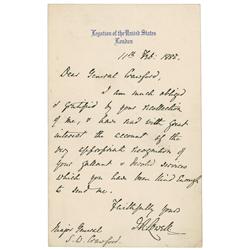 Legation of the United States
London
11th Feb: 1885.
Dear General Crawford,
I am much obliged
& gratified by your recollection
of me, & have read with great
interest the account of the
very appropriate recognition of
your gallant & devoted services
which you have been kind enough
to send me.
Faithfully yours
J. R. Lowell
Major General
S. W. Crawford.